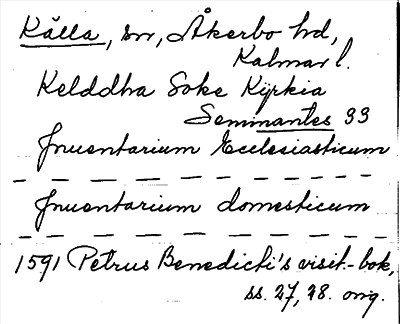 Källa, sn, Åkerbo hd,
Kalmar l.
Kelddha Soke Kyrkia
Seminantes 33
Inuentarium Ecclesiasticum
Inuentarium domesticum
1591 Petrus Benedicti's visit.-bok,
ss. 27, 28. orig.